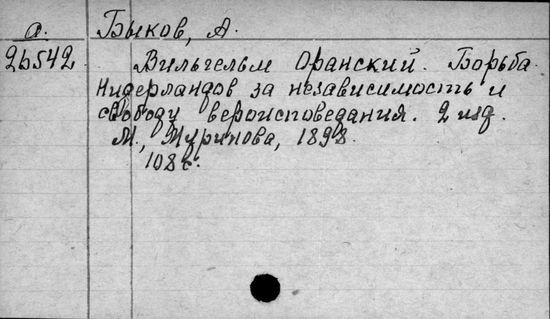 а. Быков, А.
2b542 Вильгельм Оранский. Борьба
Нидерландов за независимость и
свободу вероисповедания. 2 изд.
М., Муринова, 1898.
108 с.